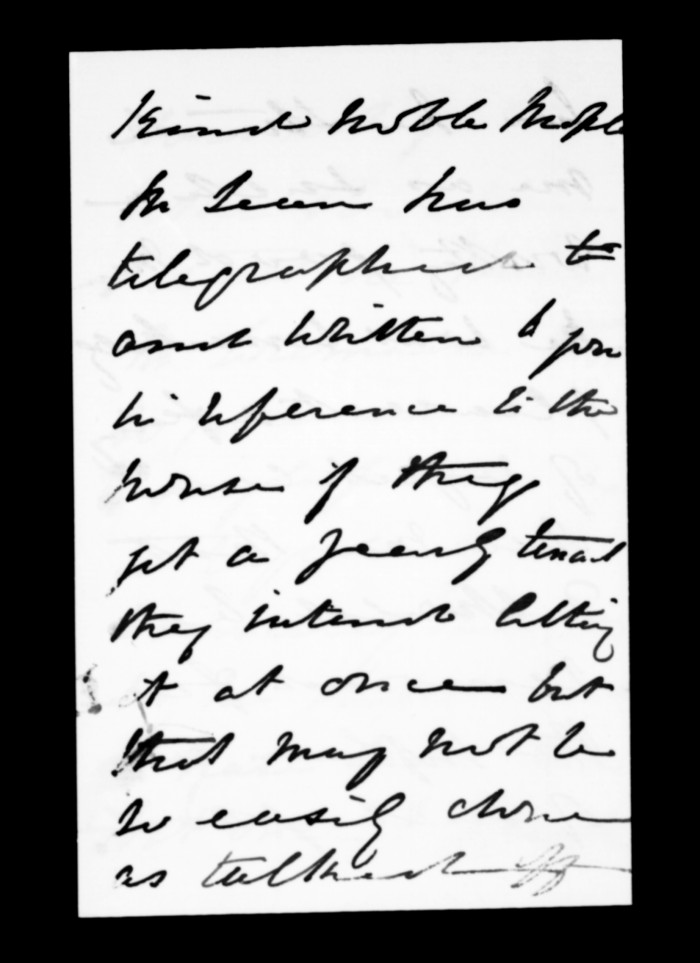 Kind Noble People
Mr Lean has
telegraphed to
and written to you
in reference to the
house if they
get a yearly tenant
they intend letting
it at once but
that may not be
so easily done
as talked of